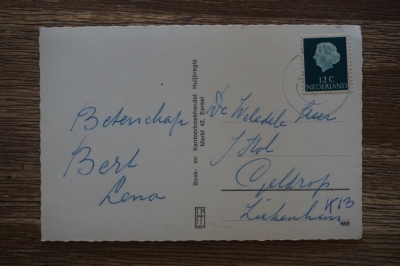 Beterschap
Bert
Lena
Boek- en Kantoorboekhandel Huijbregts
Markt 42, Boxtel
12 C
NEDERLAND
De Weledele Heer
J Hol
Geldrop
Ziekenhuis